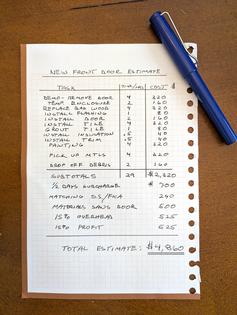 NEW FRONT DOOR ESTIMATE
TASK TIME/HRS COST $
DEMO-REMOVE DOOR 4 320
TEMP. ENCLOSURE 2 160
REPLACE BAD WOOD 4 320
INSTALL FLASHING 1 80
INSTALL DOOR 2 160
INSTALL TILE 4 320
GROUT TILE 1 80
INSTALL INSULATION .5 40
INSTALL TRIM .5 40
PAINTING 4 320
PICK UP MTLS 4 320
DROP OFF DEBRIS 2 160
SUBTOTALS 29 $2,320
1/2 DAYS SURCHARGE $ 700
MATCHING SS/FICA 240
MATERIALS SANS DOOR 500
15% OVERHEAD 525
15% PROFIT 525
TOTAL ESTIMATE: $4,860